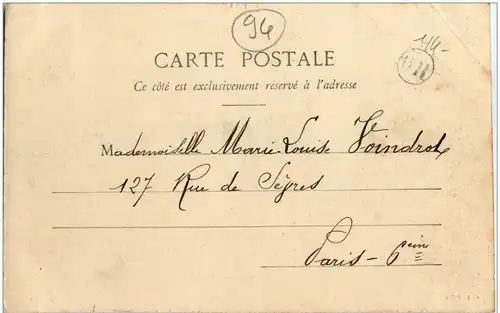 94
1/1-
CARTE POSTALE
Ce côté est exclusivement réservé à l'adresse
Mademoiselle Marie-Louise Voindrot
127 Rue de Sèvres
Paris - 6eme